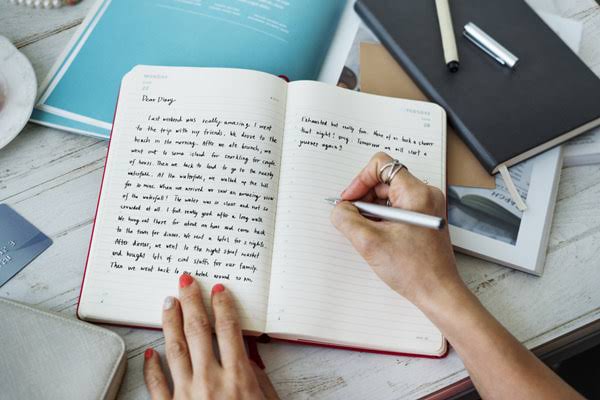 Dear Diary,
Last weekend was really amazing. I went
to the trip with my friends. We drove to the
beach in the morning. After we ate brunch, we
went out to some island for snorkling for couple
of hours. Then we back to land to go to the nearby
waterfall. At the waterfall, we walked up the hill
for so mins. When we arrived we saw an amazing view
of the waterfall! The water was so clear and not so
crowded at all. I feel really good after a long walk
We hung out there for about an hour and came back
to the town for dinner. We spent a hotel for 2 nights.
After dinner, we went to the night street market
and bought lots of cool stuffs for our family.
Then we went back to hotel around 10 pm.
Exhausted but really fun. None of us took a shower
that night! Tomorrow we will start a
journey again!